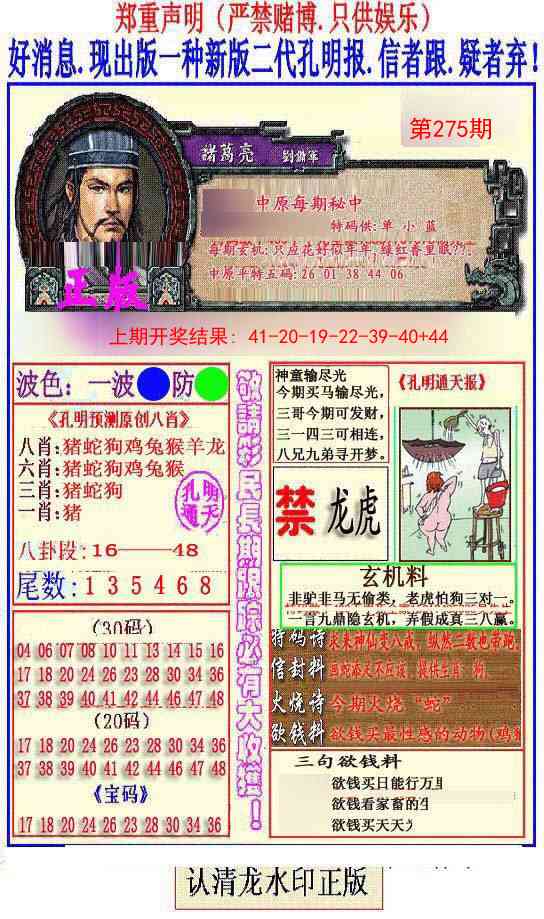 郑重声明（严禁赌博.只供娱乐）
好消息.现出版一种新版二代孔明报.信者跟.疑者弃!
第275期
諸葛亮 劉備軍
中原每期秘中
特码供:单 小 蓝
每期玄机:只应花好似年年 绿红香里眠??。
中原平特五码:26 01 38 44 06
正版
上期开奖结果: 41-20-19-22-39-40+44
波色: 一波 防
《孔明预测原创八肖》
八肖:猪蛇狗鸡兔猴羊龙
六肖:猪蛇狗鸡兔猴
三肖:猪蛇狗
一肖:猪
孔明
通天
八卦段:16——48
尾数:1 3 5 4 6 8
(30码)
04 06 07 08 09 10 11 14 15 16
17 18 20 24 26 23 28 30 34 36
37 38 39 40 41 42 44 45 46 48
(20码)
17 18 20 24 26 23 28 30 34 36
37 38 39 40 41 42 44 45 46 48
《宝码》
17 18 20 24 26 23 28 30 34 36
敬請彩民長期跟踪必有大收獲！
神童输尽光
今期买马输尽光，
三哥今期可发财，
三一四三可相连，
八兄九弟寻开梦。
《孔明通天报》
禁 龙虎
玄机料
非驴非马无偷类，老虎怕狗三对一。
一言九鼎隐玄机，弄假成真三八赢。
特码诗
信封料
火烧诗 今期火烧“蛇”
欲钱料 欲钱买最性感的动物(鸡
三句欲钱料
欲钱买日能行万里
欲钱看家畜的
欲钱买天天
认清龙水印正版